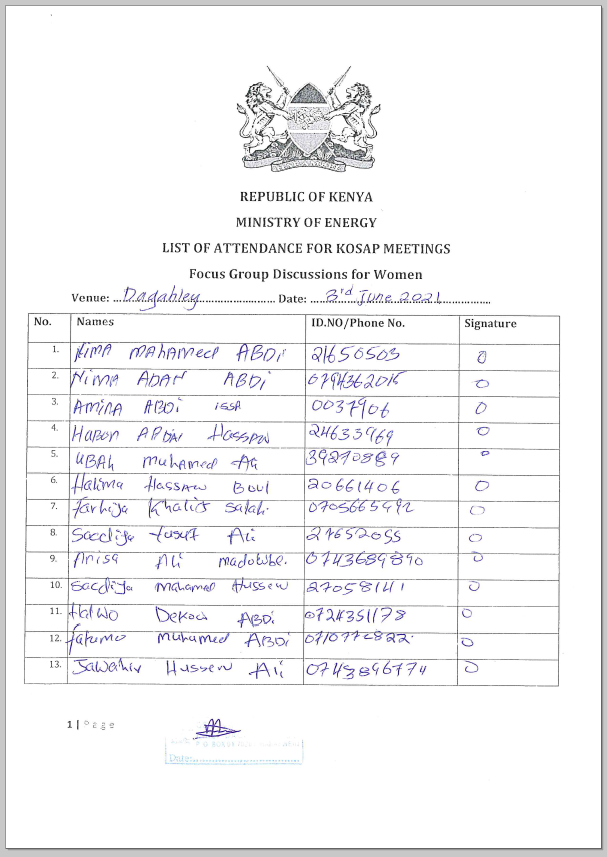 REPUBLIC OF KENYA
MINISTRY OF ENERGY
LIST OF ATTENDANCE FOR KOSAP MEETINGS
Focus Group Discussions for Women
Venue: ...Dagahley........................ Date: ...3rd June 2021................
No. Names ID.NO/Phone No. Signature
1. NIMA MAHAMED ABDI 21650503
2. NIMA ADAN ABDI 0794362015
3. AMINA ABDI ISSA 0037906
4. HABON ABDI HASSAN 24633969
5. UBAH Muhamed Ali 39270889
6. Halima Hassan Boul 20661406
7. Farhiya Khalif Salah. 0705665492
8. Saadiya Yusuf Ali 27652055
9. Anisa Ali madobe. 0743689890
10. Sacdiya Mahamed Hussen 27058141
11. HALWO Dekow ABDi 0724351178
12. fatumo Muhamed ABDi 0710772822
13. Hussen Ali 0743896774
1 | Page
Date: